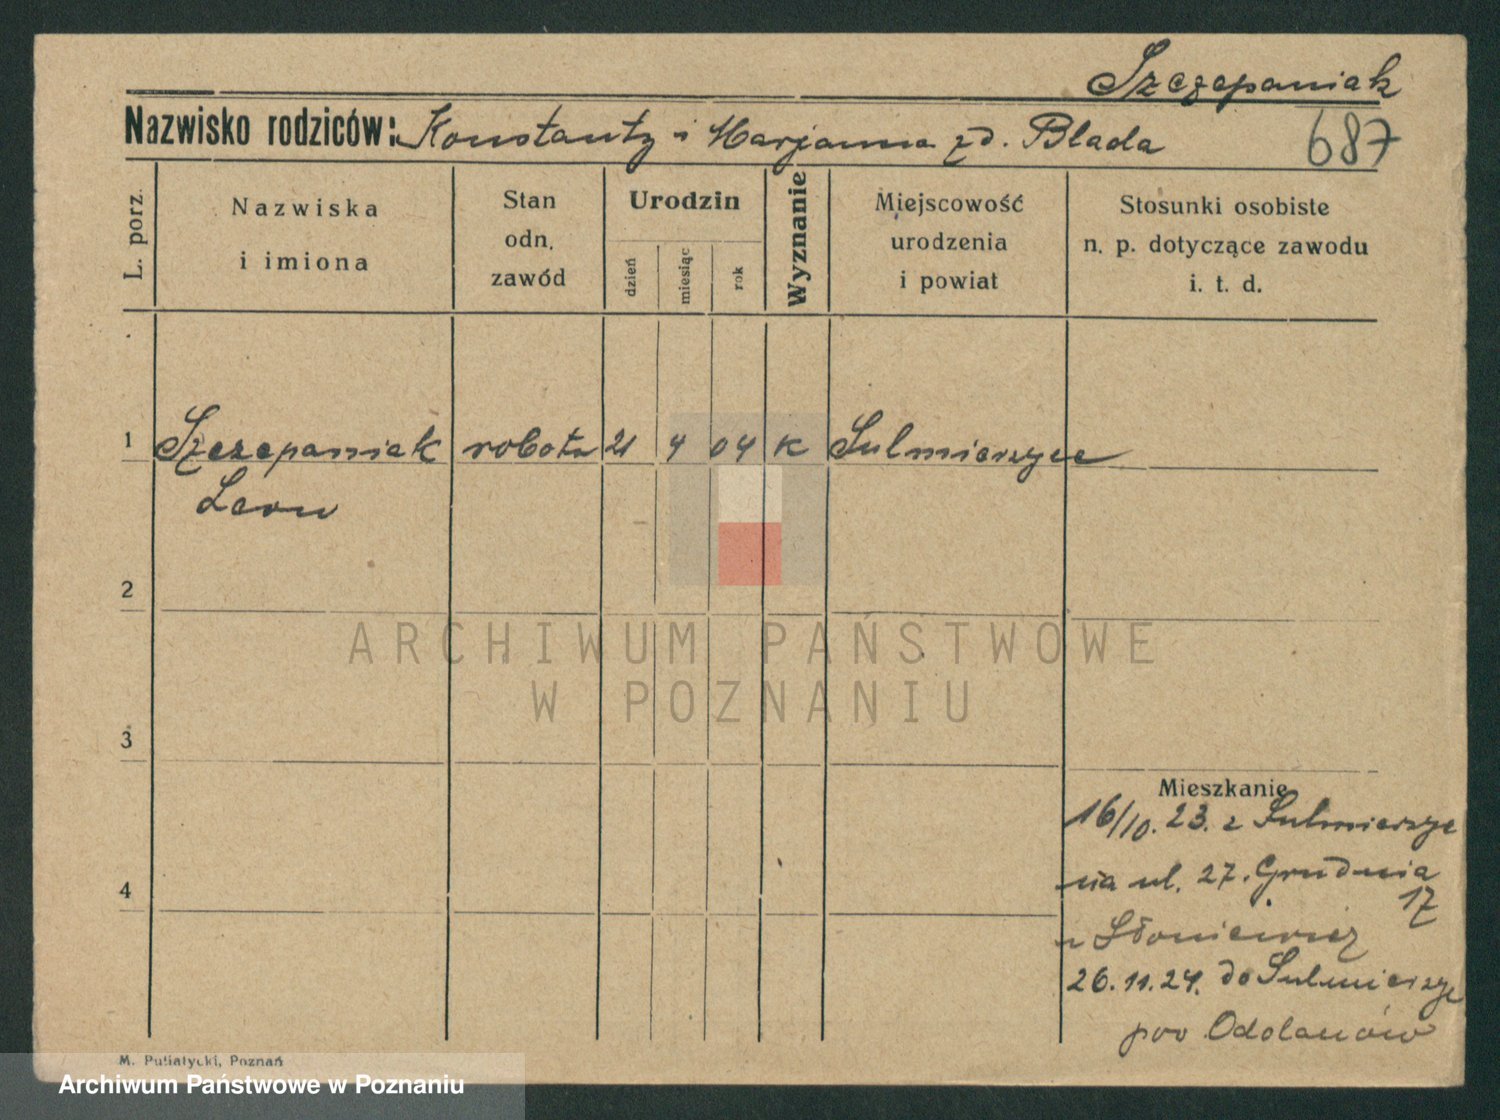 Szczepaniak
Nazwisko rodziców: Konstanty i Marjanna zd. Blada
687
L. porz.
Nazwiska
i imiona
Stan
odn.
zawód
Urodzin
dzień
miesiąc
rok
Wyznanie
Miejscowość
urodzenia
i powiat
Stosunki osobiste
n. p. dotyczące zawodu
i. t. d.
1 Szczepaniak robotn 21 4 04 K Sulmierzyce
Leon
2
3
4
Mieszkanie
16/10. 23. z Sulmierzyc
na ul. 27. Grudnia
17
u Słoniewicz
26.11.24. do Sulmierzyc
pow Odolanów
M. Putiatycki, Poznań
ARCHIWUM PAŃSTWOWE
W POZNANIU
Archiwum Państwowe w Poznaniu